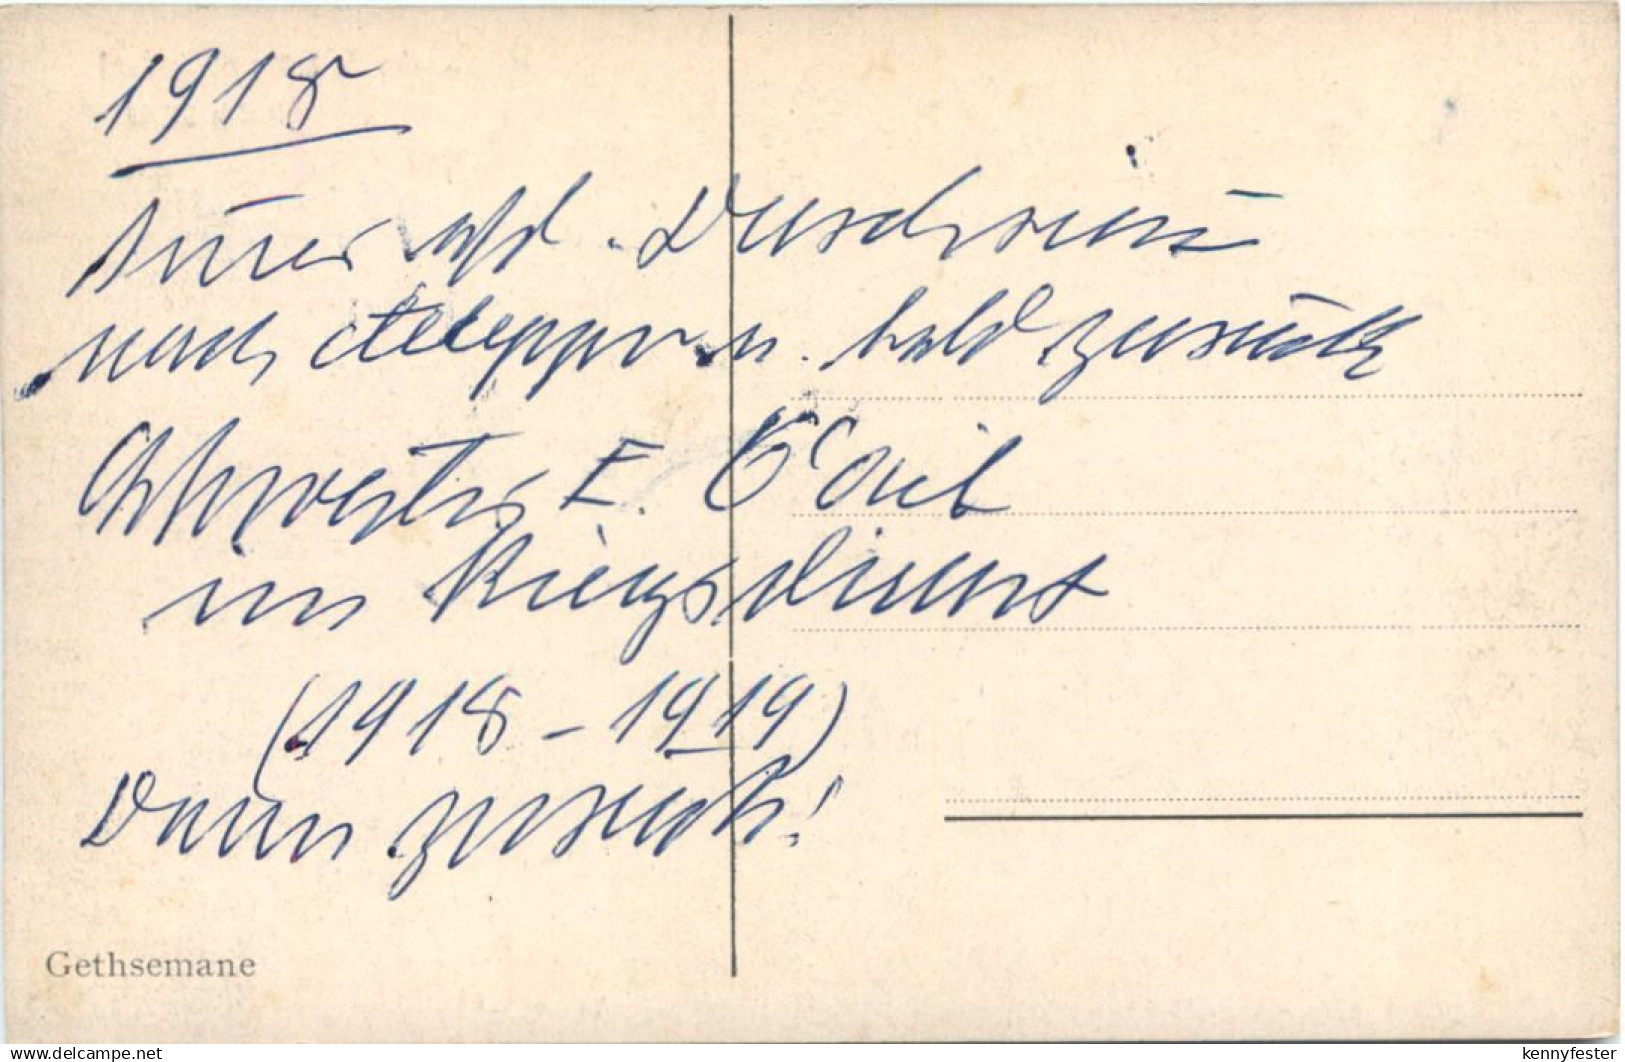 1918
nach Aleppo u. bald zurück
Schwester E.
im Kriegsdienst
(1918 – 1919)
Dann zurück!
Gethsemane
delcampe.net
kennyfester